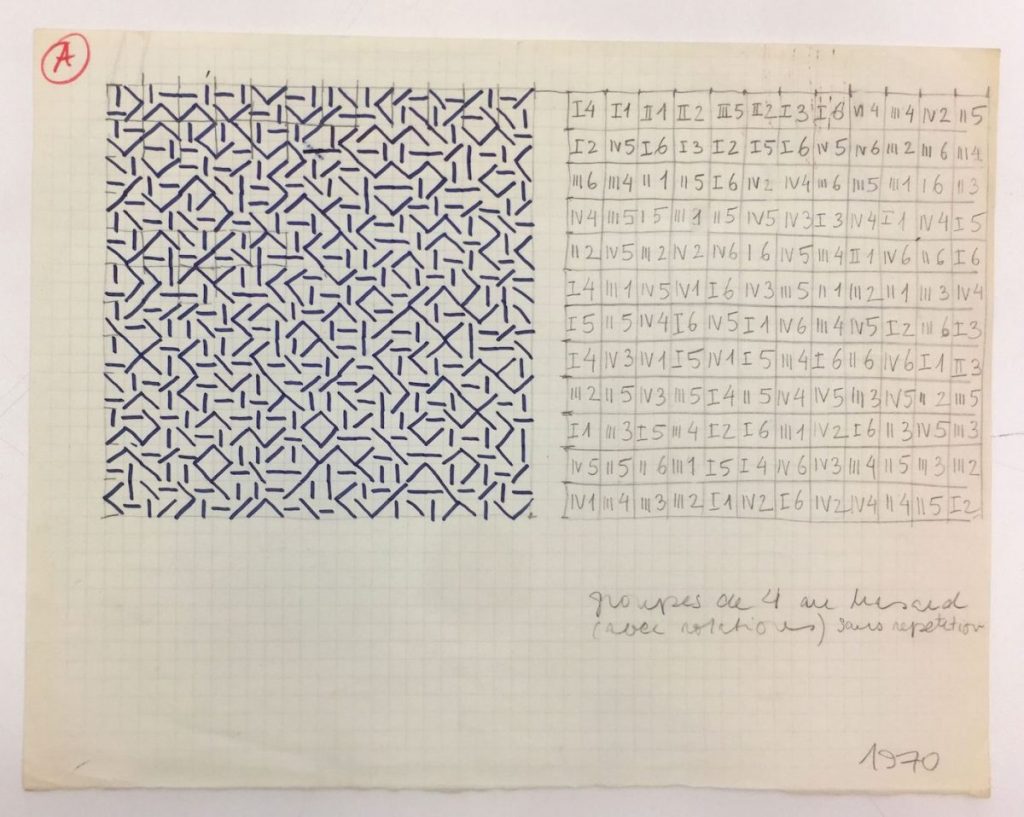 A
I4 I1 II1 II2 III5 II2 I3 I6 VI4 III4 IV2 II5
I2 IV5 I6 I3 I2 I5 I6 IV5 IV6 III2 III6 III4
III6 III4 II1 II5 I6 IV2 IV4 III6 III5 III1 I6 II3
IV4 III5 I5 III1 II5 IV5 IV3 I3 IV4 I1 IV4 I5
II2 IV5 III2 IV2 IV6 I6 IV5 III4 II1 IV6 II6 I6
I4 III1 IV5 IV1 I6 IV3 III5 II1 III2 II1 III3 IV4
I5 II5 IV4 I6 IV5 I1 IV6 III4 IV5 I2 III6 I3
I4 IV3 IV1 I5 IV1 I5 III4 I6 II6 IV6 I1 II3
III2 II5 IV3 III5 I4 II5 IV4 IV5 III3 IV5 II2 III5
I1 III3 I5 III4 I2 I6 III1 IV2 I6 II3 IV5 III3
IV5 II5 II6 III1 I5 I4 IV6 IV3 III4 II5 III3 III2
IV1 III4 III3 III2 I1 IV2 I6 IV2 IV4 II4 II5 I2
groupes de 4 au hasard
(avec rotations) sans repetition
1970